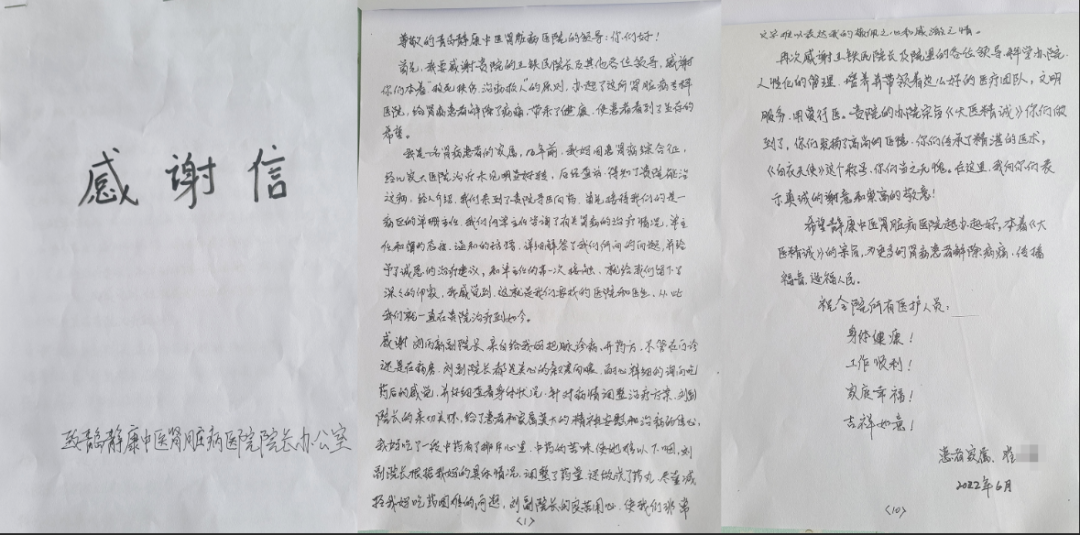 感谢信
致青岛静康中医肾脏病医院院长办公室
尊敬的青岛静康中医肾脏病医院的领导：你们好！
首先，我要感谢贵院的王铁民院长及其他各位领导，感谢
你们本着“救死扶伤，治病救人”的原则，办起了这所肾脏病专科
医院，给肾病患者解除了病痛，带来了健康，使患者看到了生存的
希望。
我是一名肾病患者的家属，12年前，我妈因患肾病综合征，
经几家大医院治疗未见明显好转，后经查访，得知了贵院能治
这病，经人介绍，我们来到了贵院寻医问药，首先接待我们的是一
病区的单珊主任，我们向单主任咨询了有关肾病的治疗情况，单主
任和蔼的态度，温和的话语，详细解答了我们所问的问题，并给
予了诚恳的治疗建议，和单主任的第一次接触，就给我们留下了
深深的印象，我感觉到，这就是我们要找的医院和医生，从此
我们就一直在贵院治疗到如今。
感谢 副院长，亲自给我妈把脉诊病，开药方，不管在门诊
还是在病房，刘副院长都是关心的问候，耐心详细的询问吃
药后的感觉，并仔细查看身体状况，针对病情调整治疗方案，刘副
院长的亲切关怀，给了患者和家属莫大的精神安慰和治病的信心，
我妈吃了一段中药有了排斥心里，中药的苦味使她难以下咽，刘
副院长根据我妈的具体情况，调整了药量，还做成了药丸，尽量减
轻我妈吃药困难的问题，刘副院长的良苦用心，使我们非常
〈1〉
文字难以表达我的敬佩之心和感激之情。
再次感谢王铁民院长及院里的各位领导，科学办院，
人性化的管理，培养并带领着这么好的医疗团队，文明
服务，用爱行医。贵院的办院宗旨《大医精诚》你们做
到了，你们发扬了高尚的医德，你们传承了精湛的医术，
《白衣天使》这个称号，你们当之无愧。在这里，我向你们表
示真诚的谢意和崇高的敬意！
希望静康中医肾脏病医院越办越好，本着《大
医精诚》的宗旨，为更多的肾病患者解除病痛，传播
福音，造福人民。
祝全院所有医护人员：
身体健康！
工作顺利！
家庭幸福！
吉祥如意！
患者家属：
2022年6月
〈10〉